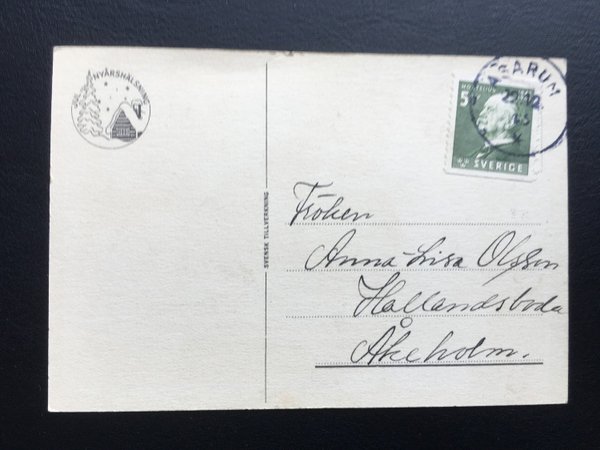 NYÅRSHÄLSNING
SVENSK TILLVERKNING
5
SVERIGE
Fröken
Anna-Lisa Olsson
Hallandsboda
Åkeholm.